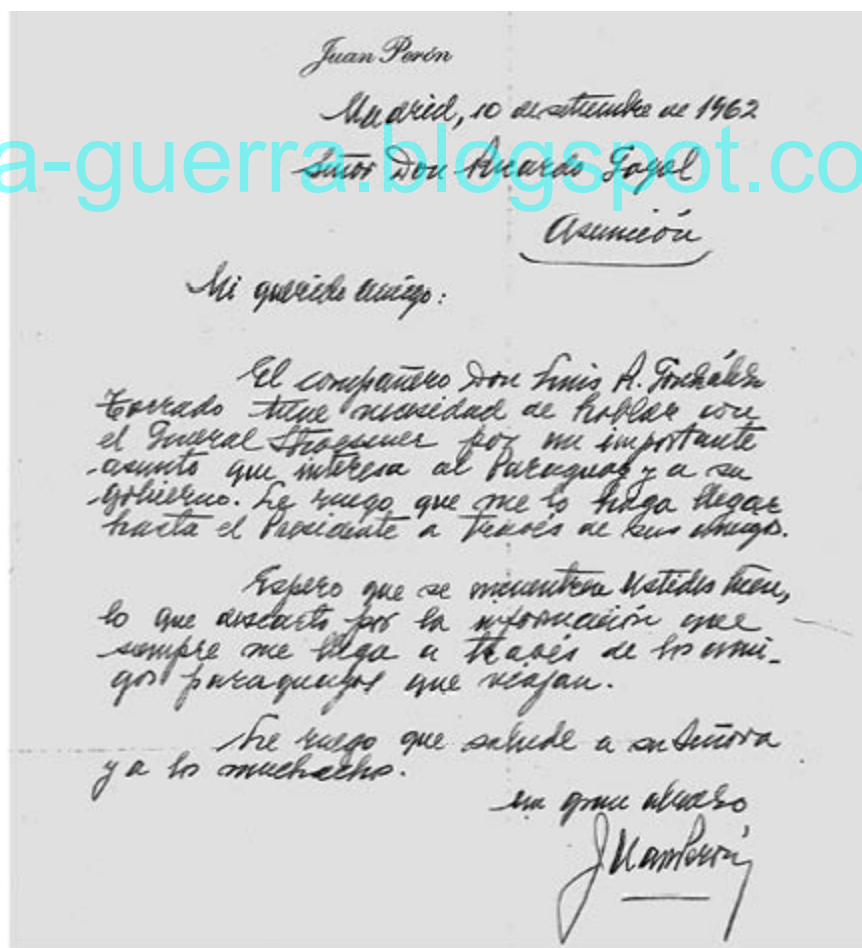 Juan Perón
Madrid, 10 de setiembre de 1962
a-guerra.blogspot.co
Señor Don Ricardo Gayol
Asunción
Mi querido amigo:
El compañero Don Luis A. González
Torrado tiene necesidad de hablar con
el General Stroessner por un importante
asunto que interesa al Paraguay y a su
gobierno. Le ruego que me lo haga llegar
hasta el Presidente a través de sus amigos.
Espero que se encuentren Ustedes bien,
lo que descarto por la información que
siempre me llega a través de los ami-
gos paraguayos que viajan.
Le ruego que salude a su Señora
y a los muchachos.
Un gran abrazo
Juan Perón